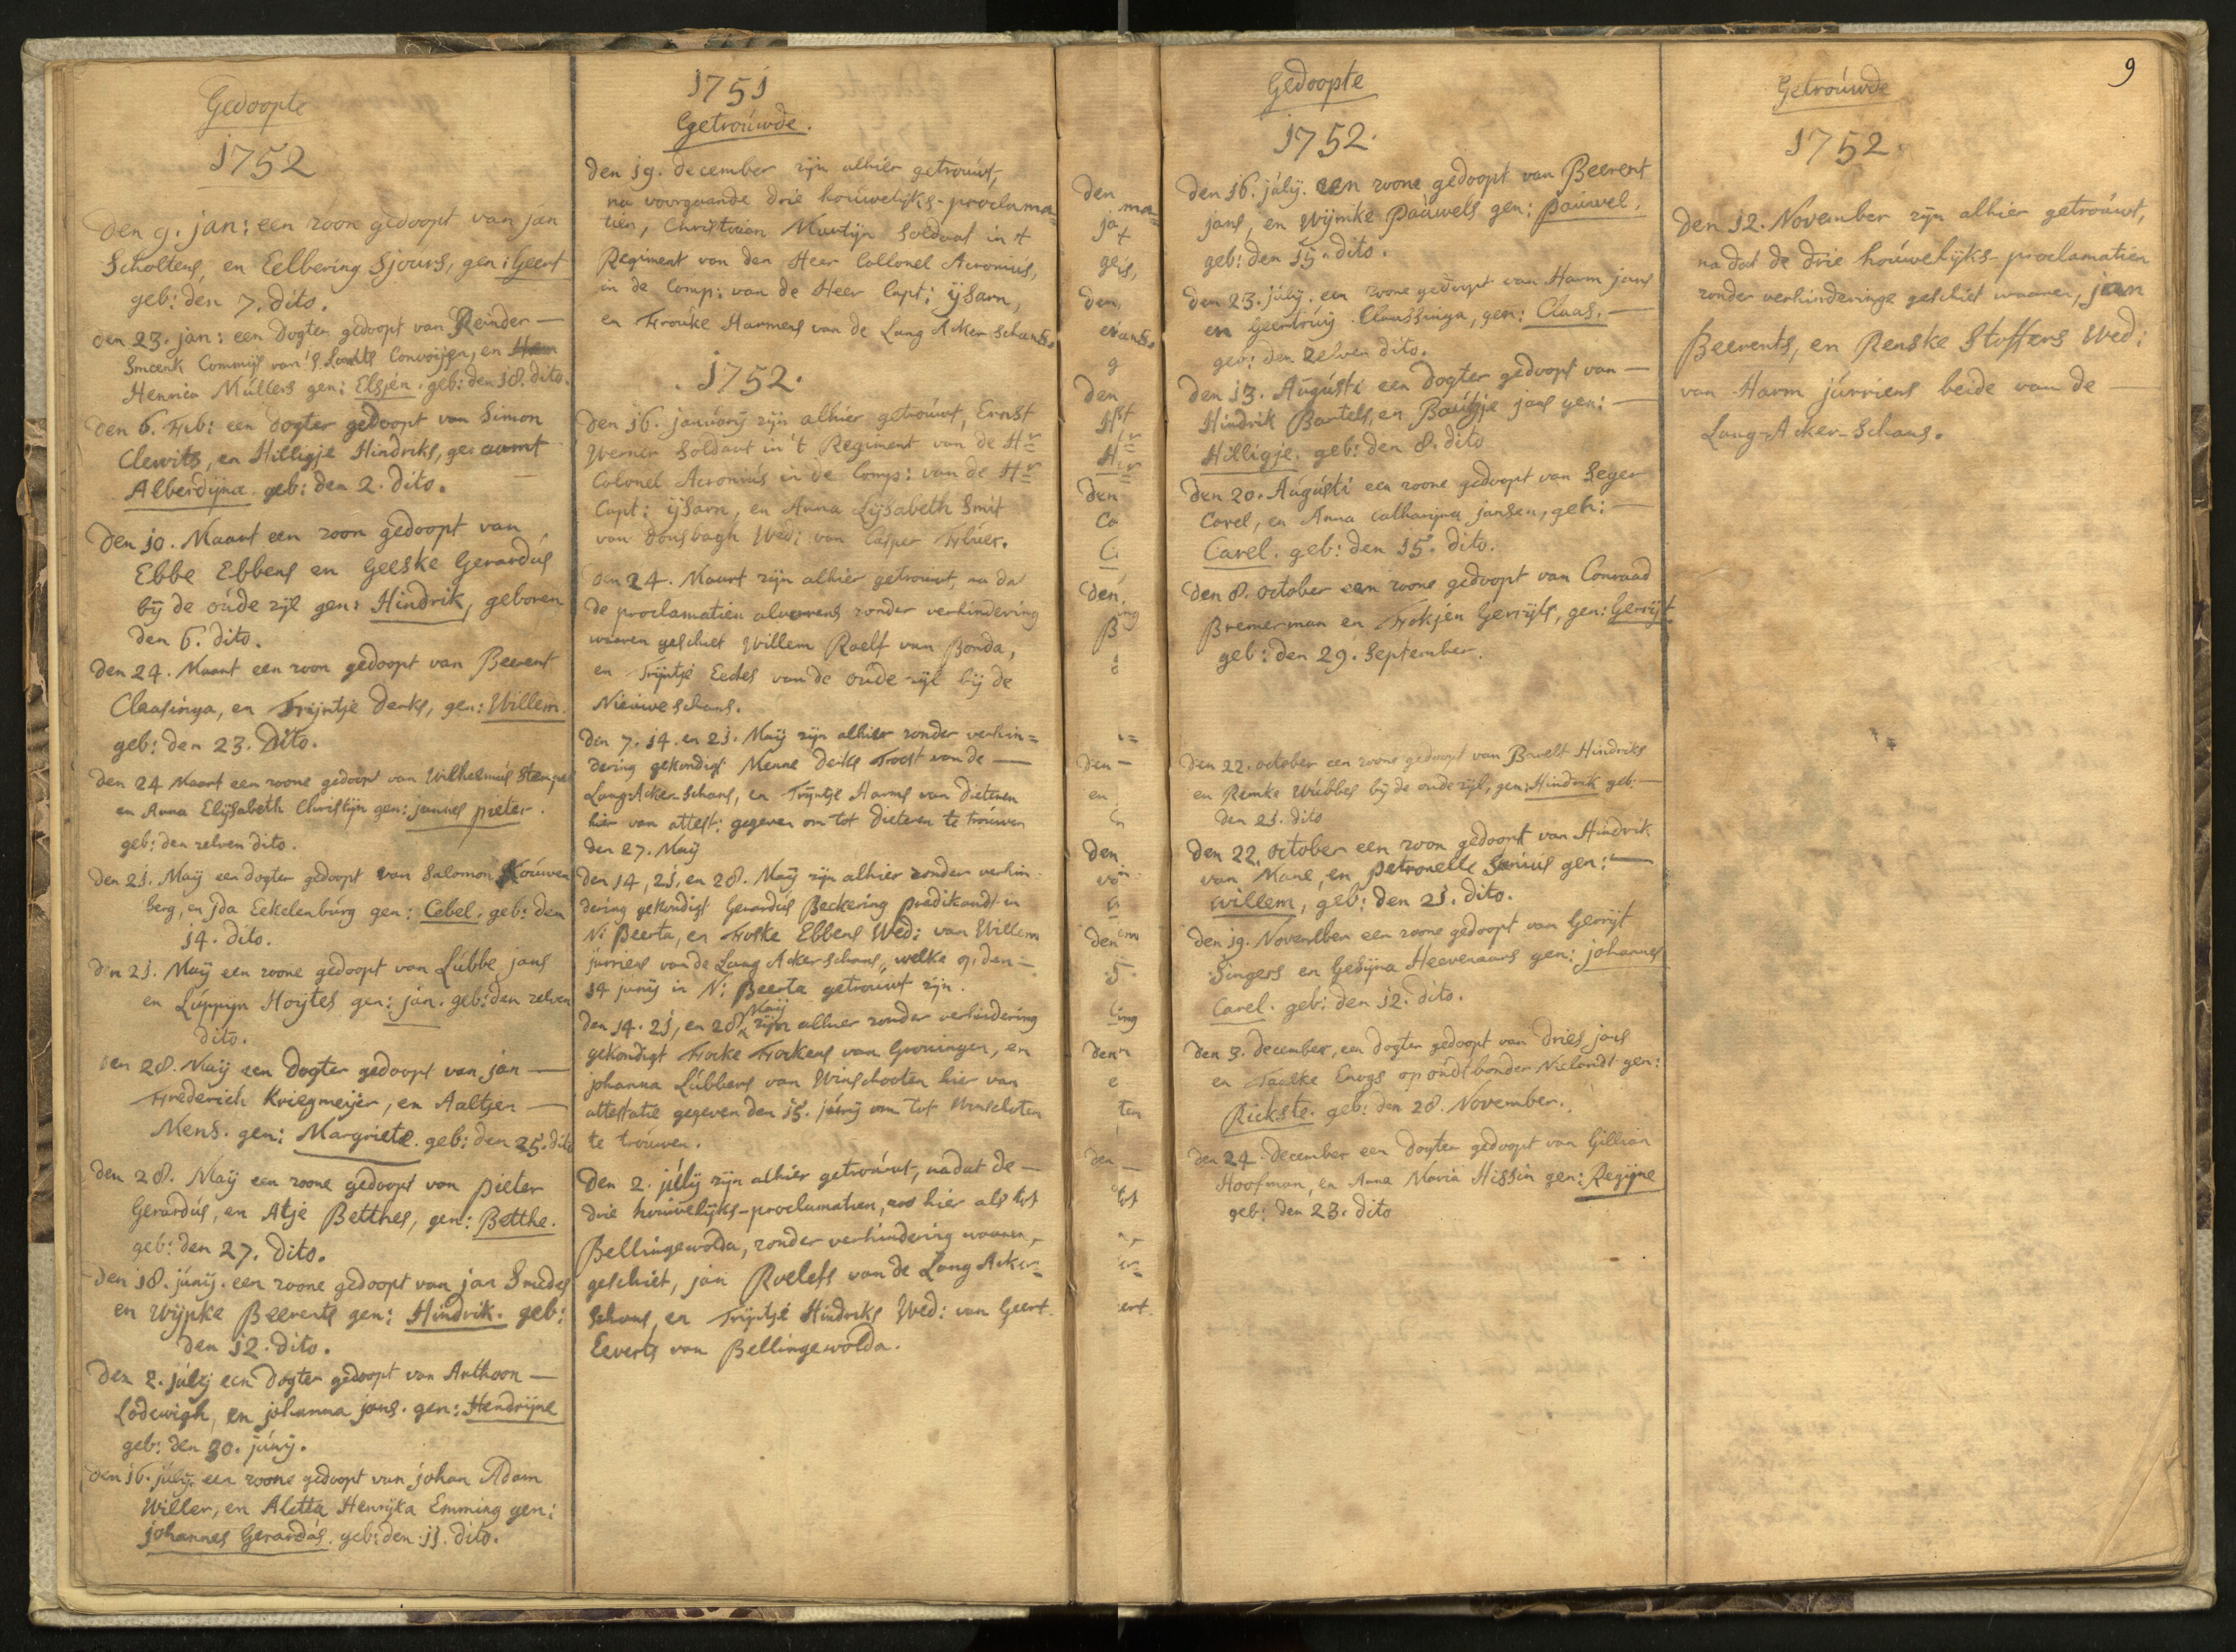 Gedoopte
1752
Den 9. jan: een zoon gedoopt van jan
Scholtens, en Eelbering Sjours, gen: Geert
geb: den 7. dito.
den 23. jan: een Dogter gedoopt van Reinder —
Smeenk Commijs van 's Landts Convoijen, en
Henrica Mullers gen: Elsjen. geb: den 18. dito.
den 6. Feb: een Dogter gedoopt van Simon
Clewits, en Hilligje Hindriks, genaamt
Alberdijna. geb: den 2. dito.
Den 10. Maart een zoon gedoopt van
Ebbe Ebbens en Geeske Gerardus
bij de oude zijl gen: Hindrik, geboren
den 6. dito.
den 24. Maart een zoon gedoopt van Beerent
Claasinga, en Trijntje Derks, gen: Willem.
geb: den 23. Dito.
den 24 Maart een zoone gedoopt van Wilhelmus
en Anna Elijsabeth Christijn gen: jannes pieter.
geb: den zelven dito.
den 21. Maij een dogter gedoopt van Salomon Kouwen
berg, en jda Eekelenburg gen: Cebel. geb: den
14. dito.
den 21. Maij een zoone gedoopt van Lubbe jans
en Luppijn Hoijtes gen: jan. geb: den zelven
dito.
den 28. Maij een Dogter gedoopt van jan —
Frederich Kriegmeijer, en Aaltjen —
Mens. gen: Margriete. geb: den 25. dito
den 28. Maij een zoone gedoopt van pieter
Gerardus, en Atje Betthes, gen: Betthe.
geb: den 27. dito.
den 18. junij. een zoone gedoopt van jan Smedes
en Wijpke Beerents gen: Hindrik. geb:
den 12. dito.
Den 2. julij een Dogter gedoopt van Anthoon —
Lodewigh, en johanna jans. gen: Hendrijne
geb: den 30. junij.
den 16. julij. een zoone gedoopt van johan Adam
Willer, en Aletta Henrijka Emming gen:
johannes Gerardus. geb: den 11. dito.
1751
Getrouwde.
Den 19. december zijn alhier getrouwt,
na voorgaande drie houwelijks-proclama-
tien, Christiaan Martijn Soldaat in 't
Regiment van den Heer Collonel Acronius,
in de Comp: van de Heer Capt: ijsarn,
en Frouke Harmens van de Lang Acker Schans.
1752.
Den 16. januarij zijn alhier getrouwt, Ernst
Werner Soldaat in 't Regiment van de Hr
Colonel Acronius in de Comp: van de Hr
Capt: ijsarn, en Anna Lijsabeth Smit
van Donsbagh Wed: van Casper
den 24. Maart zijn alhier getrouwt, na dat
de proclamatien alvorens zonder verhindering
waaren geschiet Willem Roelf van Bonda,
en Trijntje Eedes van de oude zijl bij de
Nieuwe schans.
Den 7. 14. en 21. Maij zijn alhier zonder verhin=
dering gekondigt Menne Derks Troost van de —
Lang-Acker-Schans, en Trijntje Harms van Dieteren
hier van attest: gegeven om tot Dieteren te trouwen
den 27. Maij
Den 14, 21, en 28. Maij zijn alhier zonder verhin-
dering gekondigt Gerardus Beckering predikandt in
N: Beerta, en Foske Ebbens Wed: van Willem
jurriens van de Lang Acker schans, welke op den —
14 junij in N: Beerta getrouwt zijn.
Maij
Den 14. 21, en 28 zijn alhier zonder verhindering
gekondigt Focke Fockens van Groningen, en
johanna Lubbers van Winschooten hier van
attestatie gegeven den 15. junij om tot Winschoten
te trouwen.
Den 2. julij zijn alhier getrouwt, nadat de —
drie houwelijks-proclamatien, zoo hier als tot
Bellingewolda, zonder verhindering waaren,
geschiet, jan Roelefs van de Lang Acker=
Schans, en Trijntje Hindriks Wed: van Geert
Eeverts van Bellingewolda.
Gedoopte
1752.
Den 16. julij. een zoone gedoopt van Beerent
jans, en Wijmke Pauwels gen: Pauwel.
geb: den 15. dito.
Den 23. julij. een zoone gedoopt van Harm jans
en Geertruij Claassinga, gen: Claas. —
geb: den zelven dito.
den 13. Augusti een Dogter gedoopt van —
Hindrik Bartels, en Bautje jans gen: —
Hilligje. geb: den 8. dito
Den 20. Augusti een zoone gedoopt van Seger
Carel, en Anna Catharijna jansen, geh: —
Carel. geb: den 15. dito.
Den 8. October een zoone gedoopt van Conraad
Bremerman en Fokjen Gerrijts, gen: Gerrijt
geb: den 29. September.
Den 22. october een zoone gedoopt van Barelt Hindriks
en Remke Wubbes bij de oude zijl, gen: Hindrik geb: —
den 21. dito
Den 22. October een zoon gedoopt van Hindrik
van Mane, en Petronelle Senius gen: —
willem, geb: den 21. dito.
Den 19. November een zoone gedoopt van Gerrijt
Singers en Gesijna Heevenaars gen: johannes
Carel. geb: den 12. dito.
Den 3. december, een Dogter gedoopt van Dries jans
en Taalke op oudt bonder Nielandt gen:
Rickste. geb: den 28. November.
Den 24. december een Dogter gedoopt van Gillian
Hoofman, en Anna Maria Hissin gen: Regijne
geb: den 23. dito
9
Getrouwde
1752.
Den 12. November zijn alhier getrouwt,
na dat de drie houwelijks-proclamatien
zonder verhinderinge geschiet waaren, jan
Beerents, en Renske Stoffers Wed:
van Harm jurriens beide van de —
Lang-Acker-Schans.